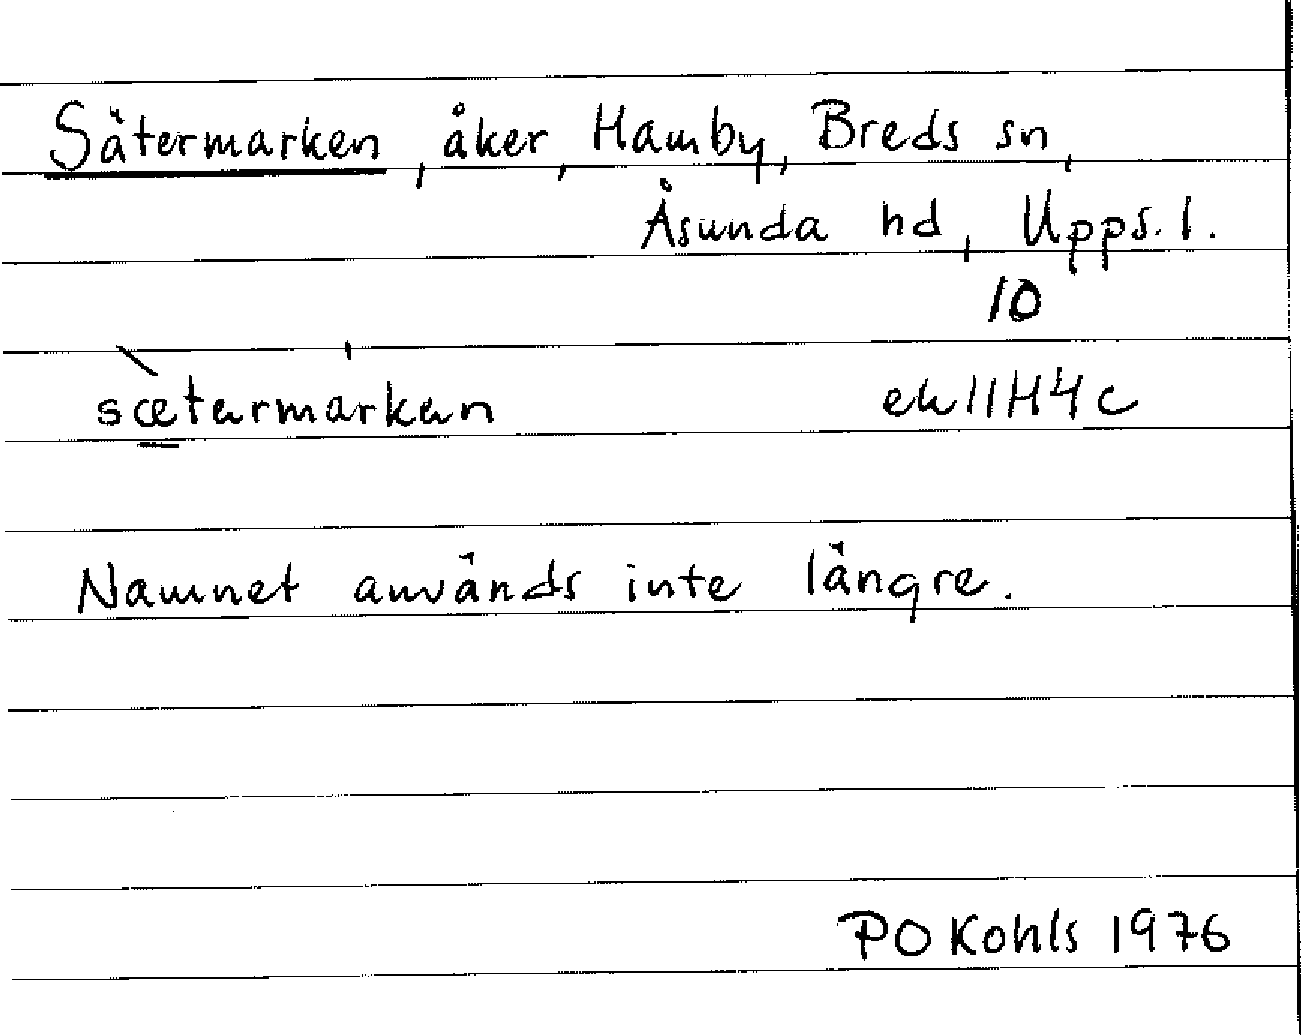 Sätermarken, åker, Hamby, Breds sn,
Åsunda hd, Upps. l.
10
sætermarken ek11H4c
Namnet används inte längre.
PO Kohls 1976